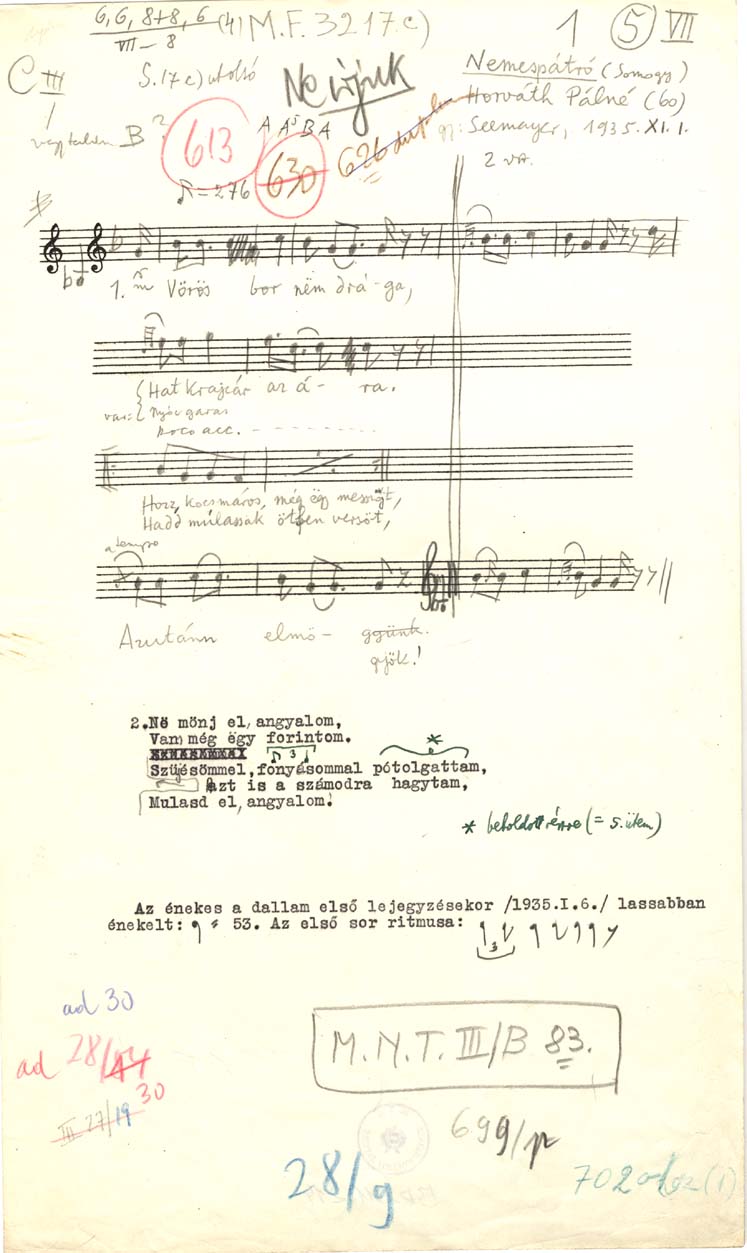 6, 6, 8+8, 6 (4) M.F. 3217 c) 1 5 VII
VII – 8
C III S. 17 c) utolsó Ne írjuk Nemespátró (Somogy)
Horváth Pálné (60)
B? 613 A A⁵ B A gy: Seemayer, 1935. XI. 1.
630 626
= 276 2 va.
1. Vörös bor nëm drá-ga,
Hat krajcár az á- ra.
var: Nyóc garas
poco acc.
Hozz, kocsmáros, még ëgy messzőt,
Hadd mulassak ötfen versöt,
a tempo
Azután elmö- ggünk.
gyök!
2. Nö mönj el, angyalom,
Van még ëgy forintom.
3 *
Szüjésömmel, fonyásommal pótolgattam,
Azt is a számodra hagytam,
Mulasd el, angyalom!
* betoldott részre (= 5. ütem)
Az énekes a dallam első lejegyzésekor /1935.I.6./ lassabban
énekelt: 53. Az első sor ritmusa:
3
ad 30
ad 28/44
30
III 27/19
M.N.T. III/B 83.
699/p
28/g
702